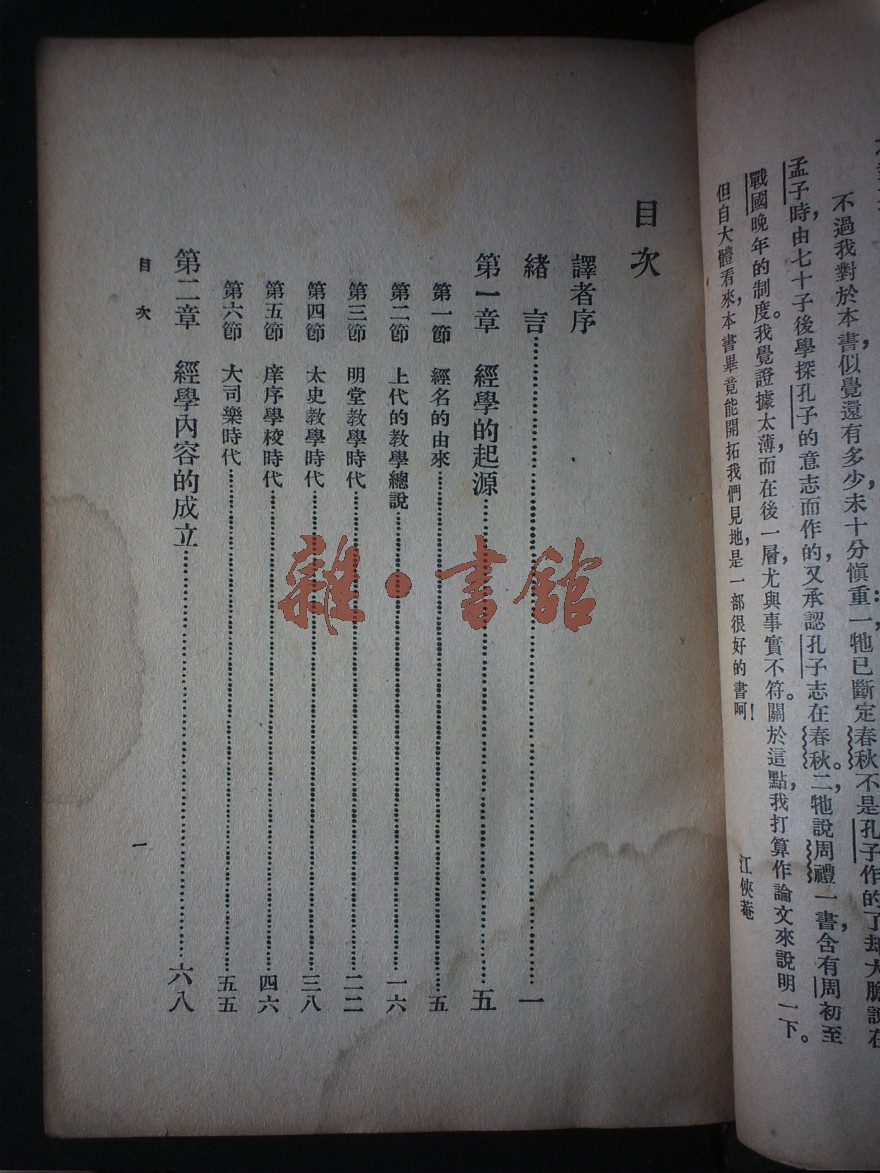 不過我對於本書，似覺還有多少未十分慎重：一，牠已斷定春秋不是孔子作的了，却大膽說在
孟子時，由七十子後學探孔子的意志而作的，又承認孔子志在春秋。二，牠說周禮一書，含有周初至
戰國晚年的制度。我覺證據太薄，而在後一層，尤與事實不符。關於這點，我打算作論文來說明一下。
但自大體看來，本書畢竟能開拓我們見地，是一部很好的書呵！
江俠菴
目次
譯者序
緒言……一
第一章　經學的起源……五
第一節　經名的由來……五
第二節　上代的教學總說……一六
第三節　明堂教學時代……二二
第四節　太史教學時代……三八
第五節　庠序學校時代……四六
第六節　大司樂時代……五五
第二章　經學內容的成立……六八
目次
一
雜·書館